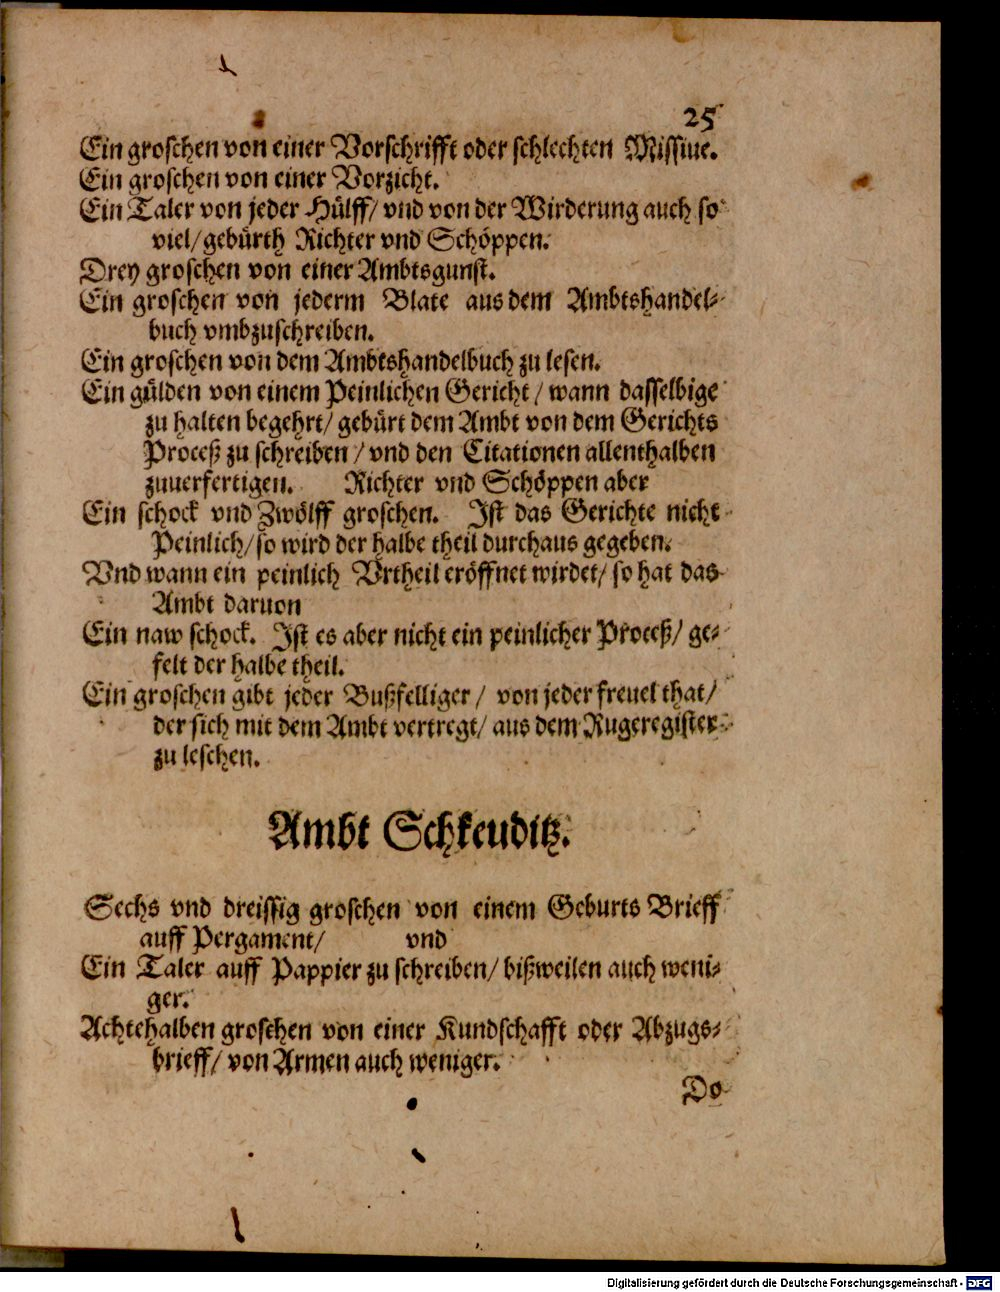 25
Ein groschen von einer Vorschrifft oder schlechten Missiue.
Ein groschen von einer Vorzicht.
Ein Taler von jeder Hülff/ vnd von der Wirderung auch so
viel/ gebürth Richter vnd Schöppen.
Drey groschen von einer Ambtsgunst.
Ein groschen von jederm Blate aus dem Ambtshandel-
buch vmbzuschreiben.
Ein groschen von dem Ambtshandelbuch zu lesen.
Ein gülden von einem Peinlichen Gericht / wann dasselbige
zu halten begehrt/ gebürt dem Ambt von dem Gerichts
Proceß zu schreiben / vnd den Citationen allenthalben
zuuerfertigen. Richter vnd Schöppen aber
Ein schock vnd Zwölff groschen. Ist das Gerichte nicht
Peinlich/ so wird der halbe theil durchaus gegeben.
Vnd wann ein peinlich Vrtheil eröffnet wirdet/ so hat das
Ambt daruon
Ein naw schock. Ist es aber nicht ein peinlicher Proceß/ ge-
felt der halbe theil.
Ein groschen gibt jeder Bußfelliger / von jeder freuel that/
der sich mit dem Ambt vertregt/ aus dem Rugeregister
zu leschen.
Ambt Schkeuditz.
Sechs vnd dreissig groschen von einem Geburts Brieff
auff Pergament/ vnd
Ein Taler auff Pappier zu schreiben/ bißweilen auch weni-
ger.
Achtehalben groschen von einer Kundschafft oder Abzugs-
brieff/ von Armen auch weniger.
Do
Digitalisierung gefördert durch die Deutsche Forschungsgemeinschaft - DFG